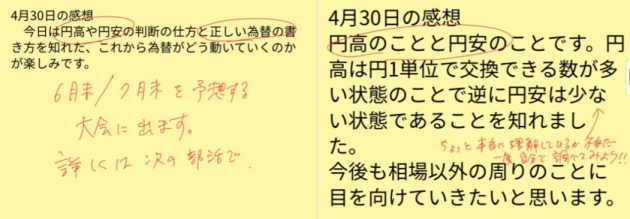 4月30日の感想
今日は円高や円安の判断の仕方と正しい為替の書
き方を知れた、これから為替がどう動いていくのか
が楽しみです。
6月末/7月末を予想する
大会に出ます。
詳しくは次の部活で
4月30日の感想
円高のことと円安のことです。円
高は円1単位で交換できる数が多
い状態のことで逆に円安は少な
い状態であることを知れまし
た。
ちょっと本当に理解しているか不安だ
一度自分で調べてみよう!!
今後も相場以外の周りのことに
目を向けていきたいと思います。